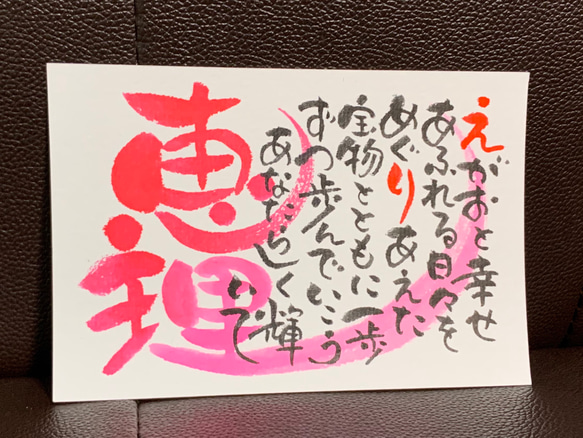 恵理
えがおと幸せ
あふれる日々を
めぐりあえた
宝物とともに一歩
ずつ歩んでいこう
あなたらしく輝
いて